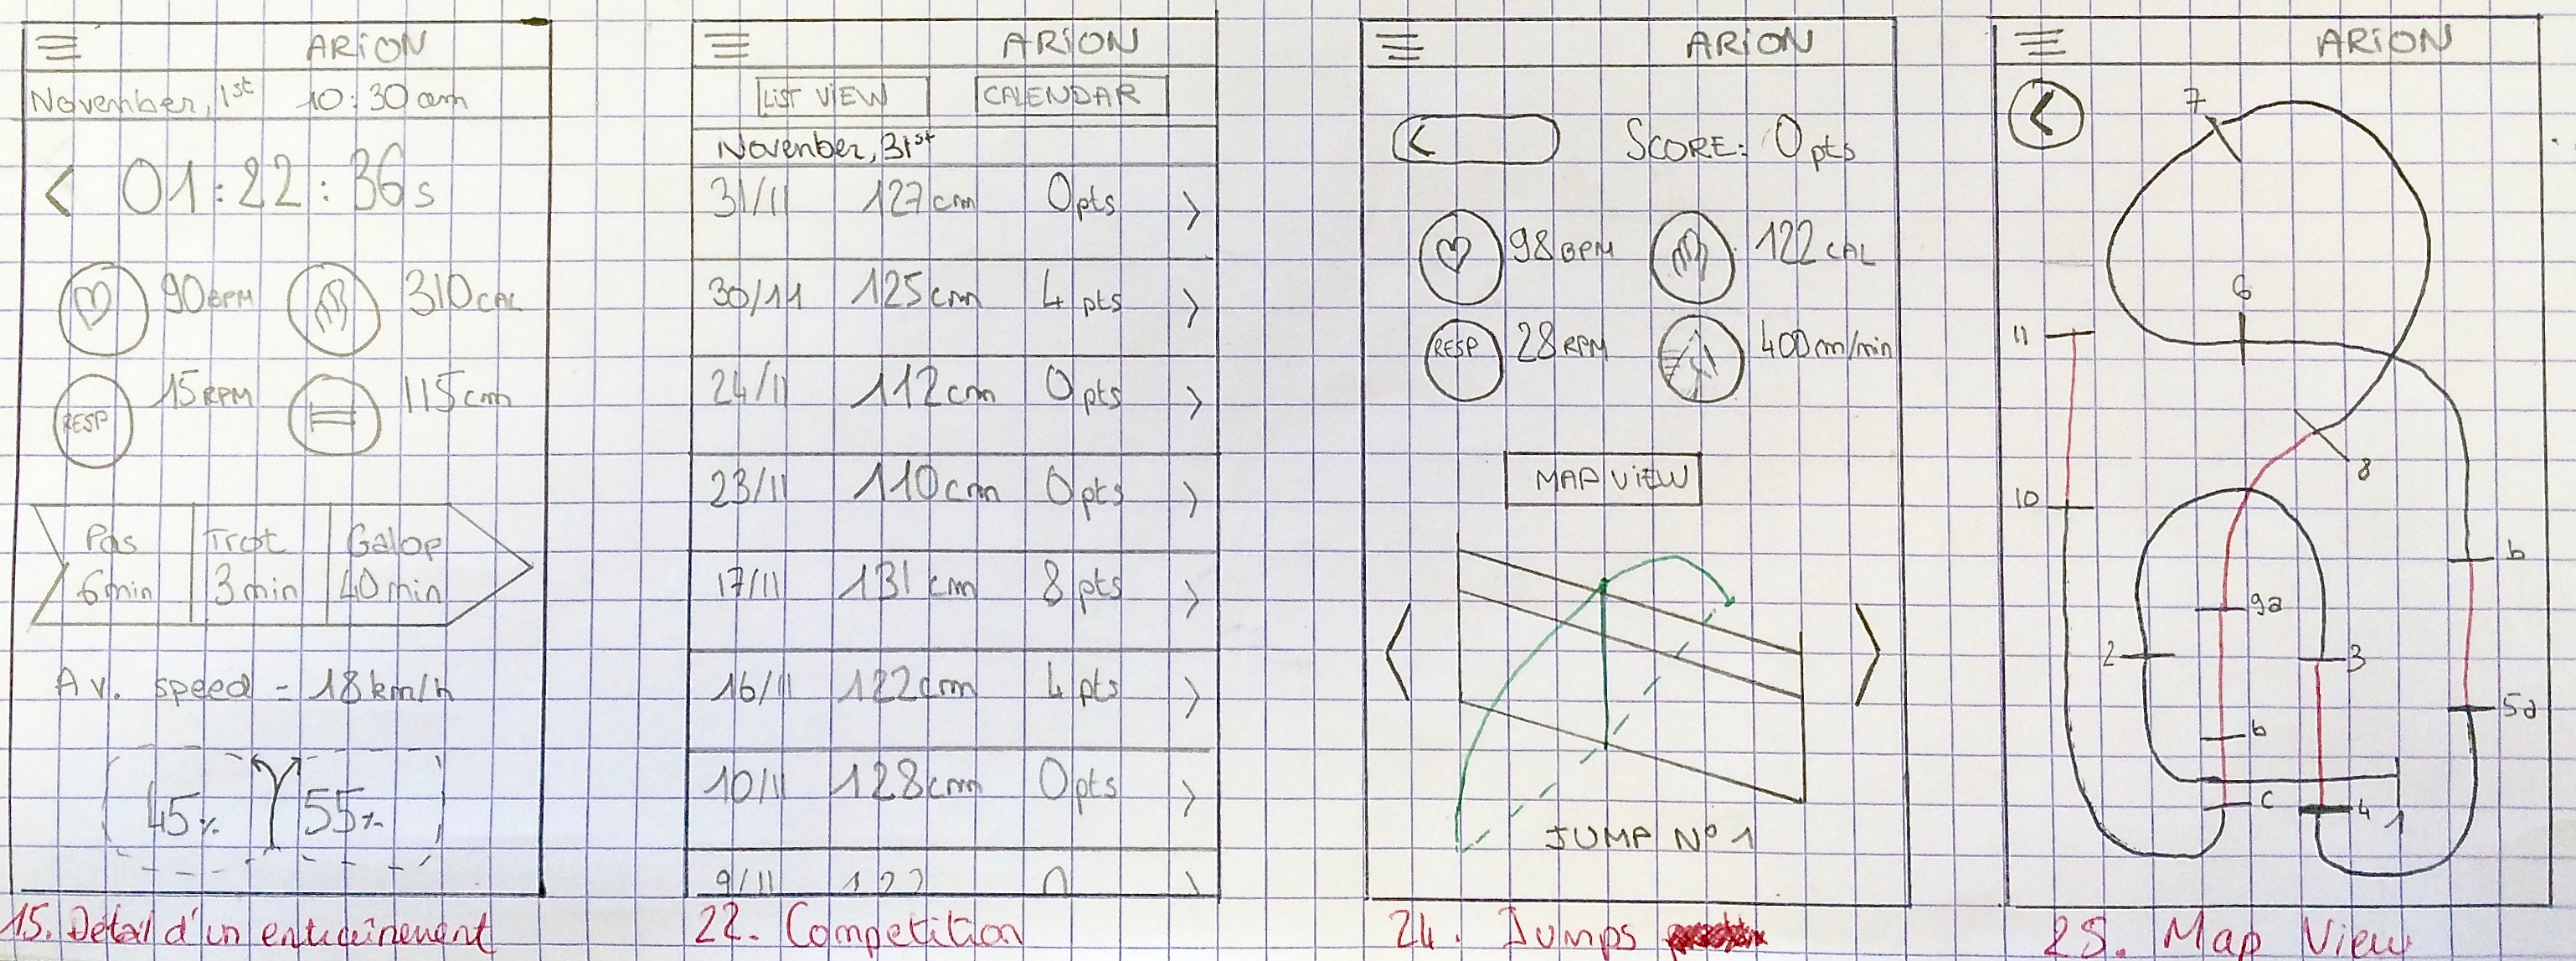 ARION
November, 1st 10:30am
< 01:22:36s
90BPM 310CAL
RESP 15RPM 115cm
Pas Trot Galop
6min 3min 40min
Av. speed = 18km/h
45% 55%
15. Détail d'un entraînement
ARION
LIST VIEW CALENDAR
November, 31st
31/11 127cm 0pts >
30/11 125cm 4 pts >
24/11 112cm 0pts >
23/11 110cm 0pts >
17/11 131cm 8 pts >
16/11 122cm 4 pts >
10/11 128cm 0pts >
9/11
22. Competition
ARION
< SCORE: 0pts
98BPM 122CAL
RESP 28RPM 400m/min
MAP VIEW
< >
JUMP N°1
24. Jumps
ARION
<
7
6
11
8
10
b
9a
2
3
5a
b
c
4
1
25. Map View